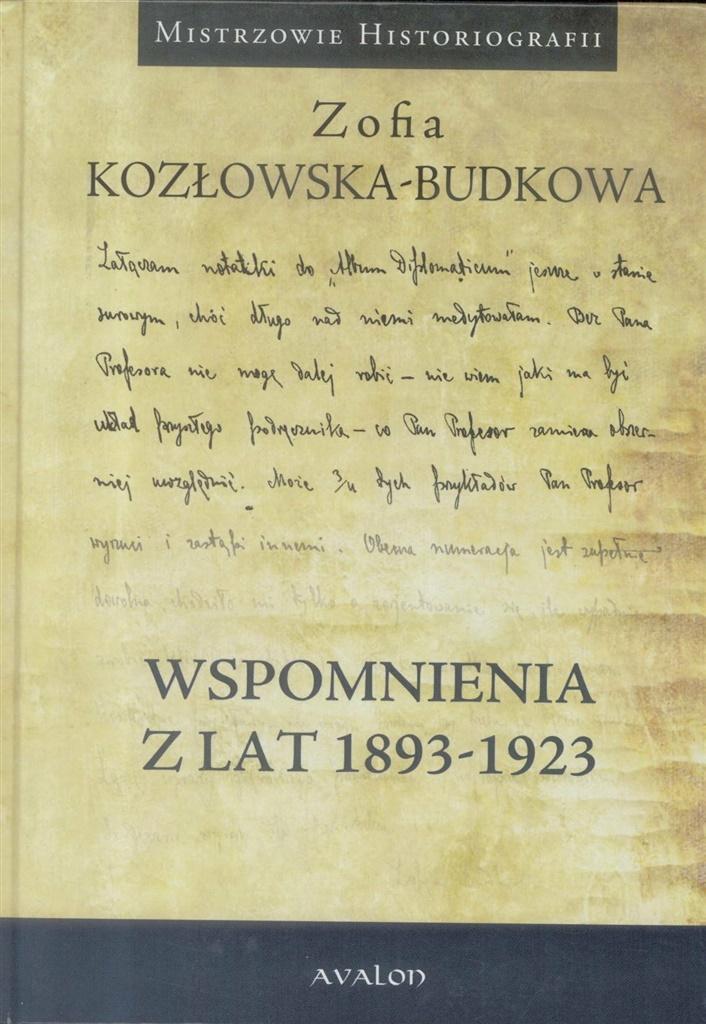 MISTRZOWIE HISTORIOGRAFII
Zofia
KOZŁOWSKA-BUDKOWA
Załączam notatki do „Album Diplomaticum" jeszcze w stanie
surowym, choć długo nad niemi medytowałam. Bez Pana
Profesora nie mogę dalej robić – nie wiem jaki ma być
układ przyszłego podręcznika – co Pan Profesor zamierza obszer-
niej uwzględnić. Może 3/4 tych przykładów Pan Profesor
wyrzuci i zastąpi innemi. Obecna numeracja jest zupełnie
dowolna, chodziło mi tylko o zorjentowanie się, ile
WSPOMNIENIA
Z LAT 1893-1923
AVALON